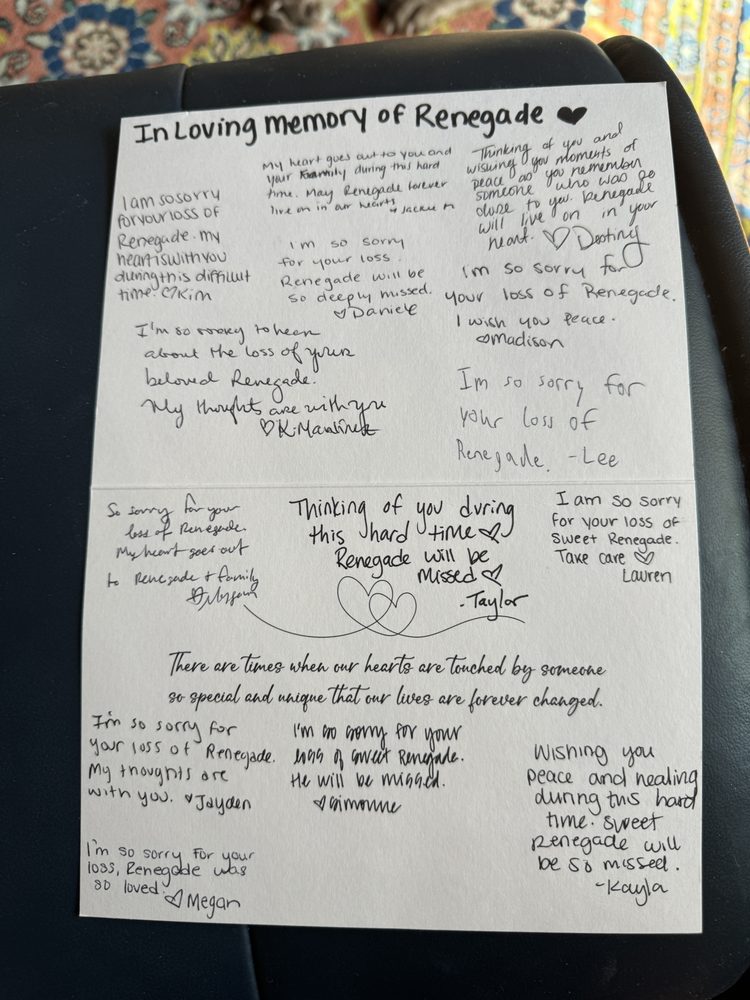 In Loving Memory of Renegade ♥
I am so sorry
for your loss of
Renegade. my
heart is with you
during this difficult
time. ♡Kim
My heart goes out to you and
your family during this hard
time. May Renegade forever
live on in our hearts
- Jackie M
Thinking of you and
wishing you moments of
peace as you remember
someone who was so
close to you. Renegade
will live on in your
heart. ♡ Destiny
I'm so sorry
for your loss.
Renegade will be
so deeply missed.
♡Daniele
I'm so sorry for
your loss of Renegade.
I wish you peace.
♡madison
I'm so sorry to hear
about the loss of your
beloved Renegade.
My thoughts are with you
♡K.
Im so sorry for
your loss of
Renegade. -Lee
So sorry for your
loss of Renegade.
My heart goes out
to Renegade + family
Thinking of you during
this hard time ♡
Renegade will be
missed ♡
-Taylor
I am so sorry
for your loss of
sweet Renegade.
Take care ♡
Lauren
There are times when our hearts are touched by someone
so special and unique that our lives are forever changed.
I'm so sorry for
your loss of Renegade.
My thoughts are
with you. ♥Jayden
I'm so sorry for your
loss of sweet Renegade.
He will be missed.
♡Simonne
Wishing you
peace and healing
during this hard
time. Sweet
Renegade will
be so missed.
-Kayla
I'm so sorry for your
loss, Renegade was
so loved. ♡Megan